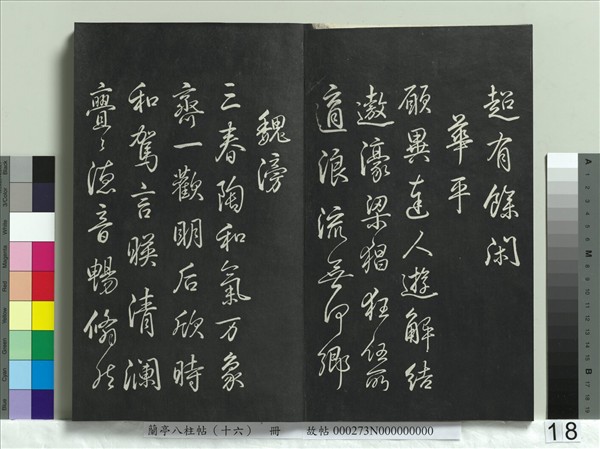 超有餘閑
華平
願與達人遊解結
遨濠梁猖狂任所
適浪流無何鄉
魏滂
三春陶和氣万象
齊一歡明后欣時
和駕言暎清瀾
亹〻德音暢翛然
蘭亭八柱帖（十六） 冊 故帖000273N000000000
18